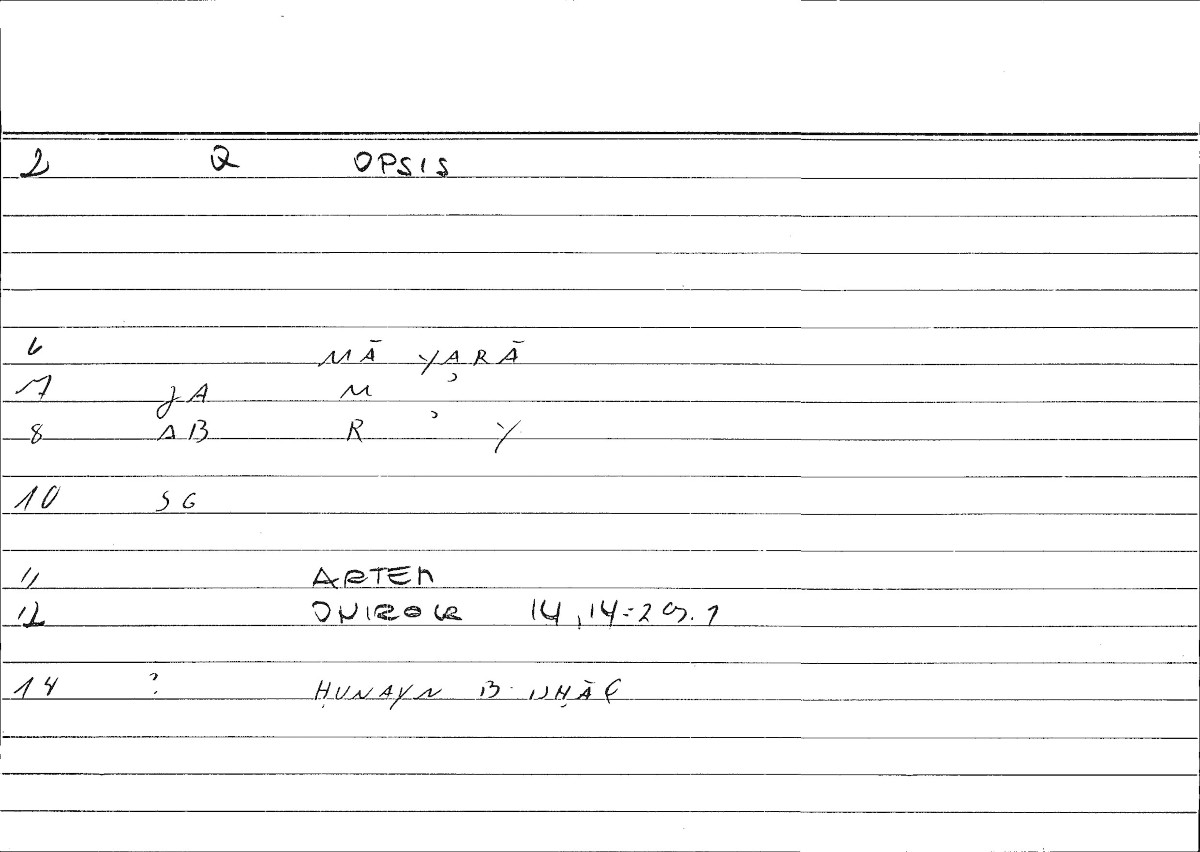 2 Q OPSIS
6 MĀ YARĀ
7 JA M ʾ
8 AB R ʾ Y
10 SG
11 ARTEM
12 ONIROCR 14,14:29.1
14 ? ḤUNAYN B. ISḤĀQ